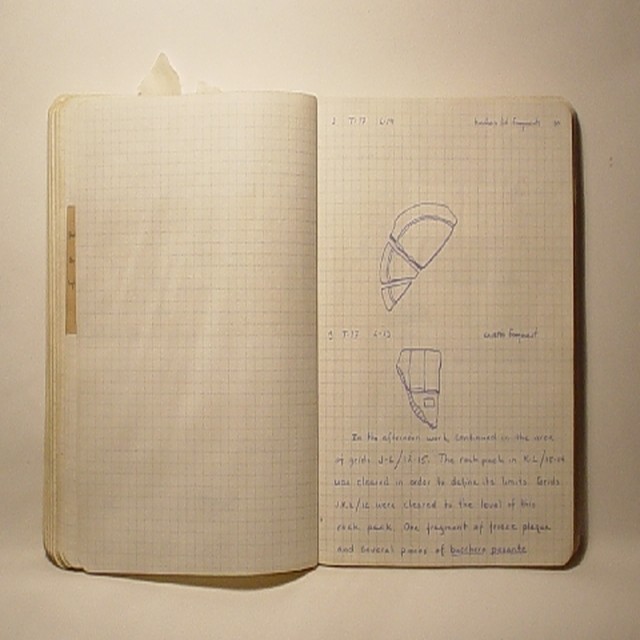 2 T-17 L-14 bucchero lid fragments
3 T-17 L-13 cretto fragment
In the afternoon work continued in the area
of grids J-L/12-15. The rock pack in K-L/15-14
was cleared in order to define its limits. Grids
J.K.L/12 were cleared to the level of this
rock pack. One fragment of frieze plaque
and several pieces of bucchero pesante